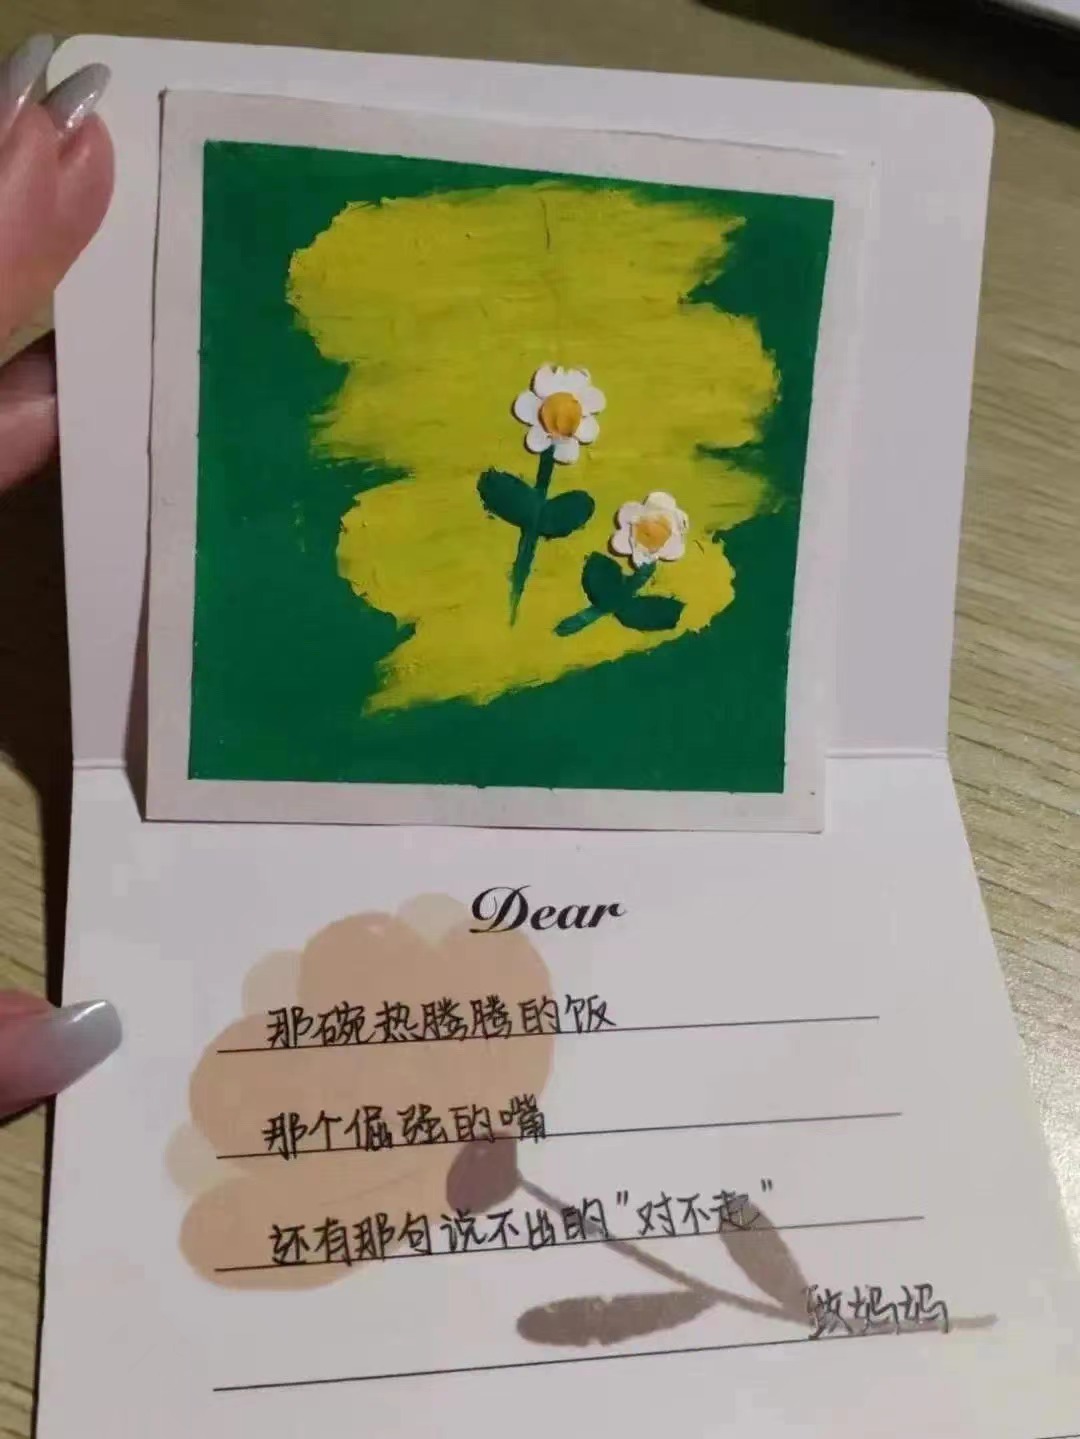 Dear
那碗热腾腾的饭
那个倔强的嘴
还有那句说不出的"对不起"
致妈妈